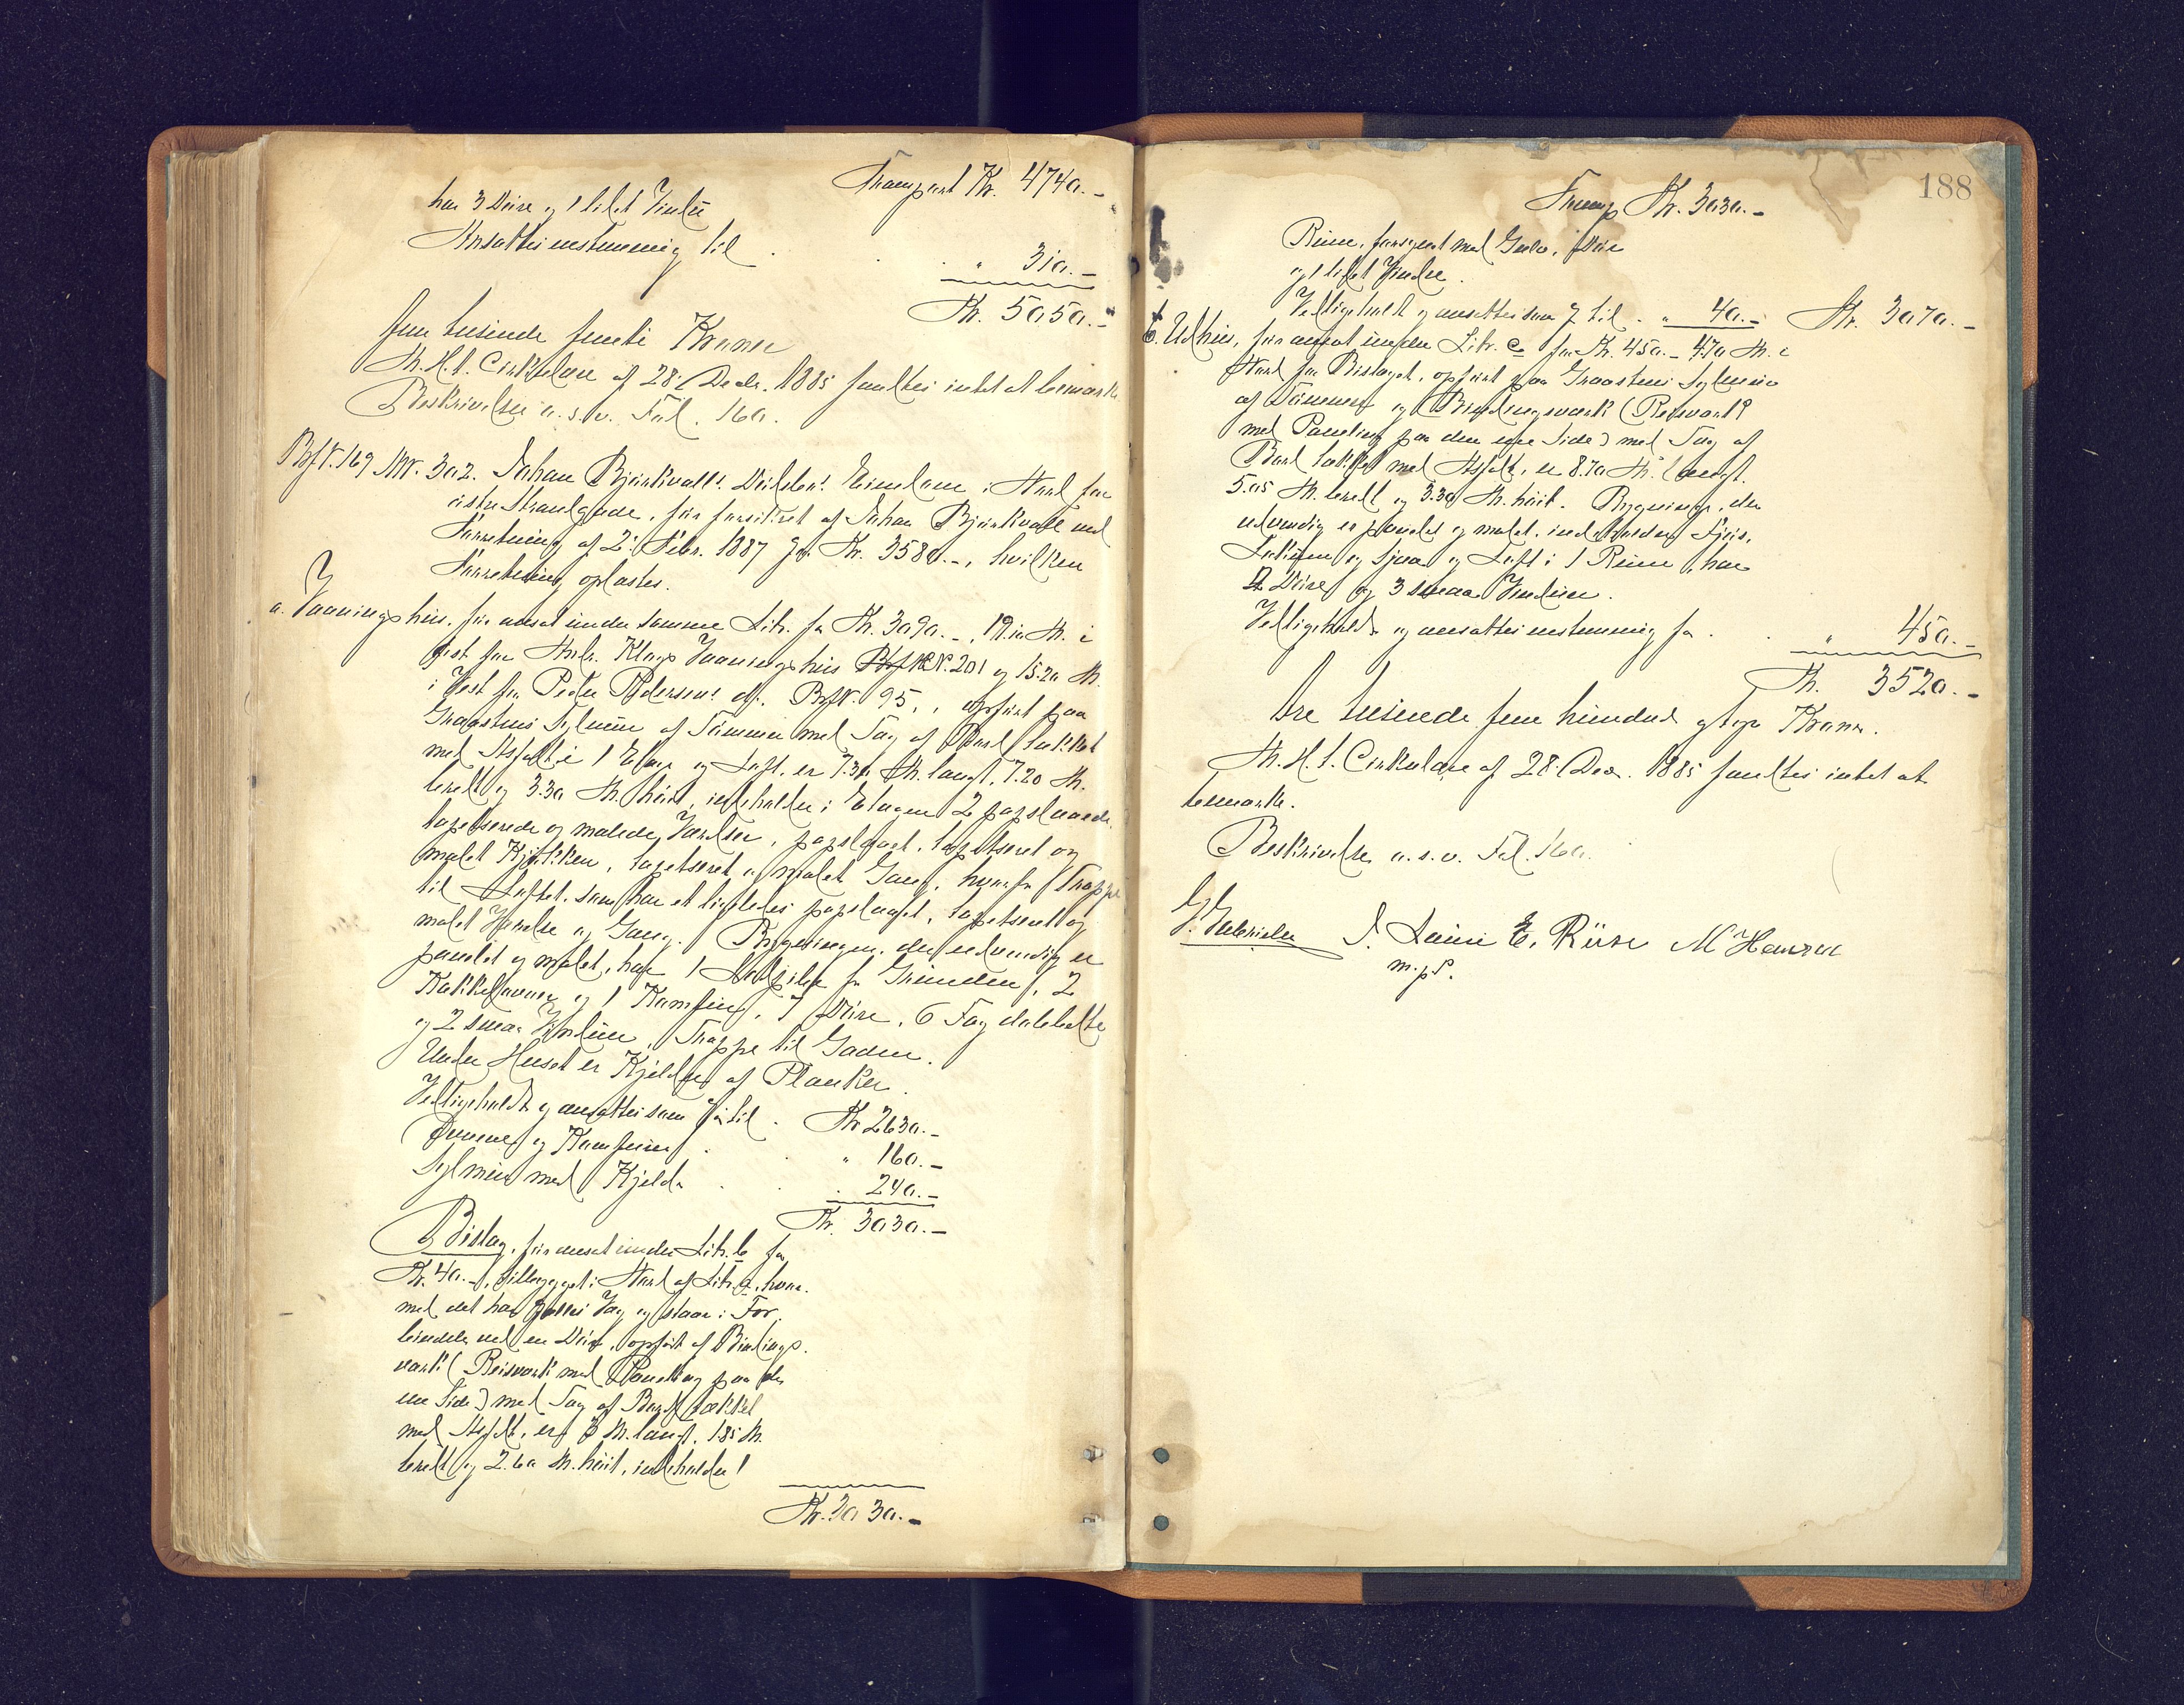 Transport Kr. 4740.-
har 3 Döre og 1 lidet Vindu
Ansattes nestemmig til . . . " 310.-
Kr. 5050.-
fem tusinde femti Kroner
M. H. t. Cirkulære af 28. Decbr. 1885 fandtes intet at bemærke
Beskrivelse o. s. v. Fol. 160.
Bf. N. 169 M. N. 302. Johan Björkvalls Eiendom i Nord for
östre Strandgade, för forsikret af Johan Björkvall ved
Forretning af 2. Febr. 1887 for Kr. 3580.-, hvilken
Forretning oplæstes.
a. Vaaningshus, för ansat under samme Litr. for Kr. 3090.-, 19.10 M. i
Öst for Andr. Klays Vaaningshus N. 201 og 15.20 M.
i Vest for Peder Pedersens do. Bf. N. 95, opført paa
Graastens Sylmur af Tömmer med Tag af Bord tækket
med Asfalt i 1 Etage og Loft, er 7.30 M. langt, 7.20 M.
bredt og 3.30 M. höit, indeholder i Etagen 2 papslaaede,
tapetserede og malede Værelser, papslaaet, tapetseret og
malet Kjökken, tapetseret og malet Gang, hvorfra Trappe
til Loftet, som har et ligeledes papslaaet, tapetseret og
malet Værelse og Gang. Bygningen, der udvendig er
panelet og malet, har 1 fra Grunden, 2
Kakkelovne og 1 Komfur, 7 Döre, 6 Fag dobbelte
og 2 smaa Vinduer, Trappe til Gaden.
Under Huset er Kjelder af Planker.
Vedligeholdt og ansattes som för til . Kr. 2630.-
Ovnene og Komfuren . . " 160.-
Sylmur med Kjelder . . " 240.-
Kr. 3030.-
b. Bislag, för ansat under Litr. b for
Kr. 40.-, tilbygget i Nord af Litr. a, hvor-
med det har fælles Væg og staar i For-
bindelse ved en Dör, opfört af Bindings-
værk (Reisværk med Paneling paa den
ene Side) med Tag af Bord tækket
med Asfalt, er M. langt, 1.85 M.
bredt og 2.60 M. höit, indeholder 1
Kr. 3030.-
188
Transp. Kr. 3030.-
Rum, forsynet med Gulv, Dör
og 1 lidet Vindu.
Vedligeholdt og ansattes som för til . " 40.- Kr. 3070.-
c. Udhus, för ansat under Litr. c for Kr. 450.- 4.70 M. i
Nord for Bislaget, opfört paa Graastens Sylmur
af Tömmer og Bindingsværk (Reisværk
med Paneling paa den ene Side) med Tag af
Bord tækket med Asfalt, er 8.70 M. langt,
5.05 M. bredt og 3.30 M. höit. Bygningen, der
udvendig er panelet og malet, indeholder Fjös,
og Loft i 1 Rum, har
Döre og 3 smaa Vinduer.
Vedligeholdt og ansattes nestemmig for . . " 450.-
Kr. 3520.-
tre tusinde fem hundrede og tyve Kroner.
M. H. t. Cirkulære af 28. Decbr. 1885 fandtes intet at
bemærke.
Beskrivelse o. s. v. Fol. 160.
G. Gabrielsen E. Riise M Hansen
m. p. P.